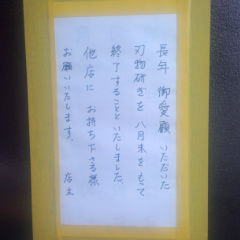 長年 御愛顧 いただいた
刃物研ぎを 八月末をもって
終了することといたしました。
他店に お持ち下さる様
お願いいたします。 店主